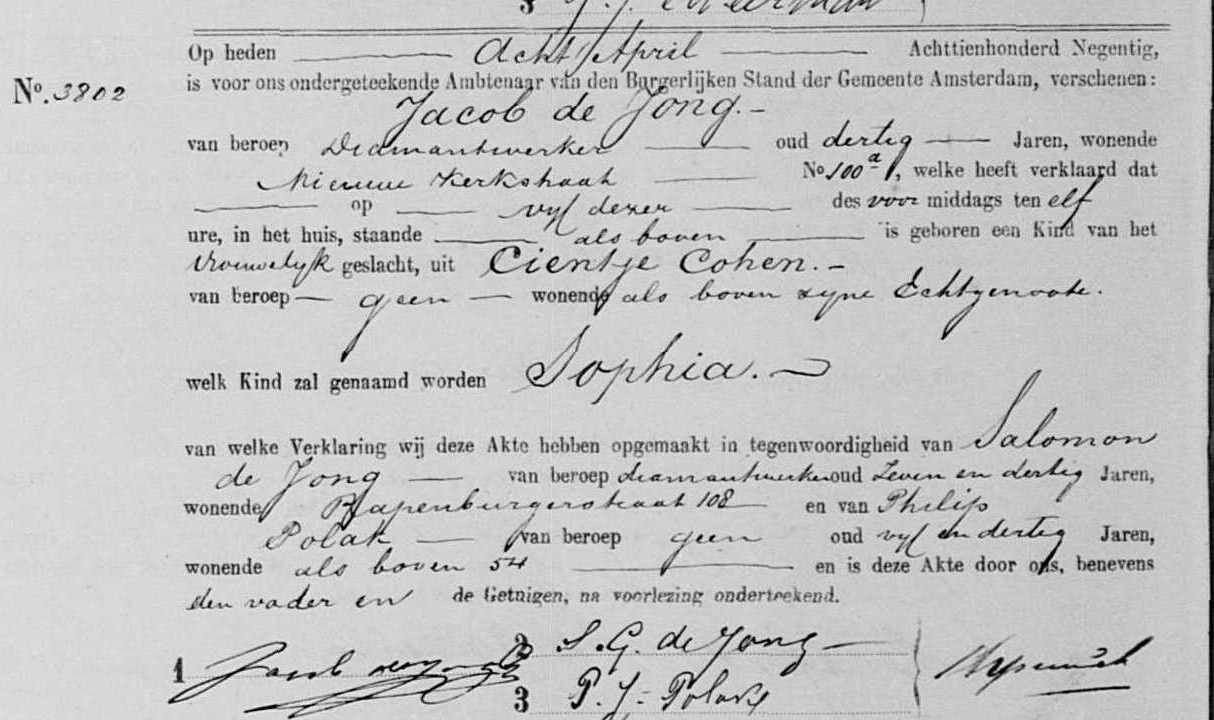 3
Op heden Acht April Achttienhonderd Negentig,
No. 3802 is voor ons ondergeteekende Ambtenaar van den Burgerlijken Stand der Gemeente Amsterdam, verschenen:
Jacob de Jong.
van beroep Diamantwerker oud dertig Jaren, wonende
Nieuwe Kerkstraat No. 100 a, welke heeft verklaard dat
op vijf dezer des voor middags ten elf
ure, in het huis, staande als boven is geboren een Kind van het
Vrouwelijk geslacht, uit Cientje Cohen.
van beroep geen wonende als boven zijne Echtgenoote.
welk Kind zal genaamd worden Sophia.
van welke Verklaring wij deze Akte hebben opgemaakt in tegenwoordigheid van Salomon
de Jong van beroep diamantwerker oud Zeven en dertig Jaren,
wonende Rapenburgerstraat 108 en van Philip
Polak van beroep geen oud vijf en dertig Jaren,
wonende als boven 54 en is deze Akte door ons, benevens
den vader en de Getuigen, na voorlezing onderteekend.
1 Jacob de Jong 2 S. G. de Jong
3 P. J. Polak